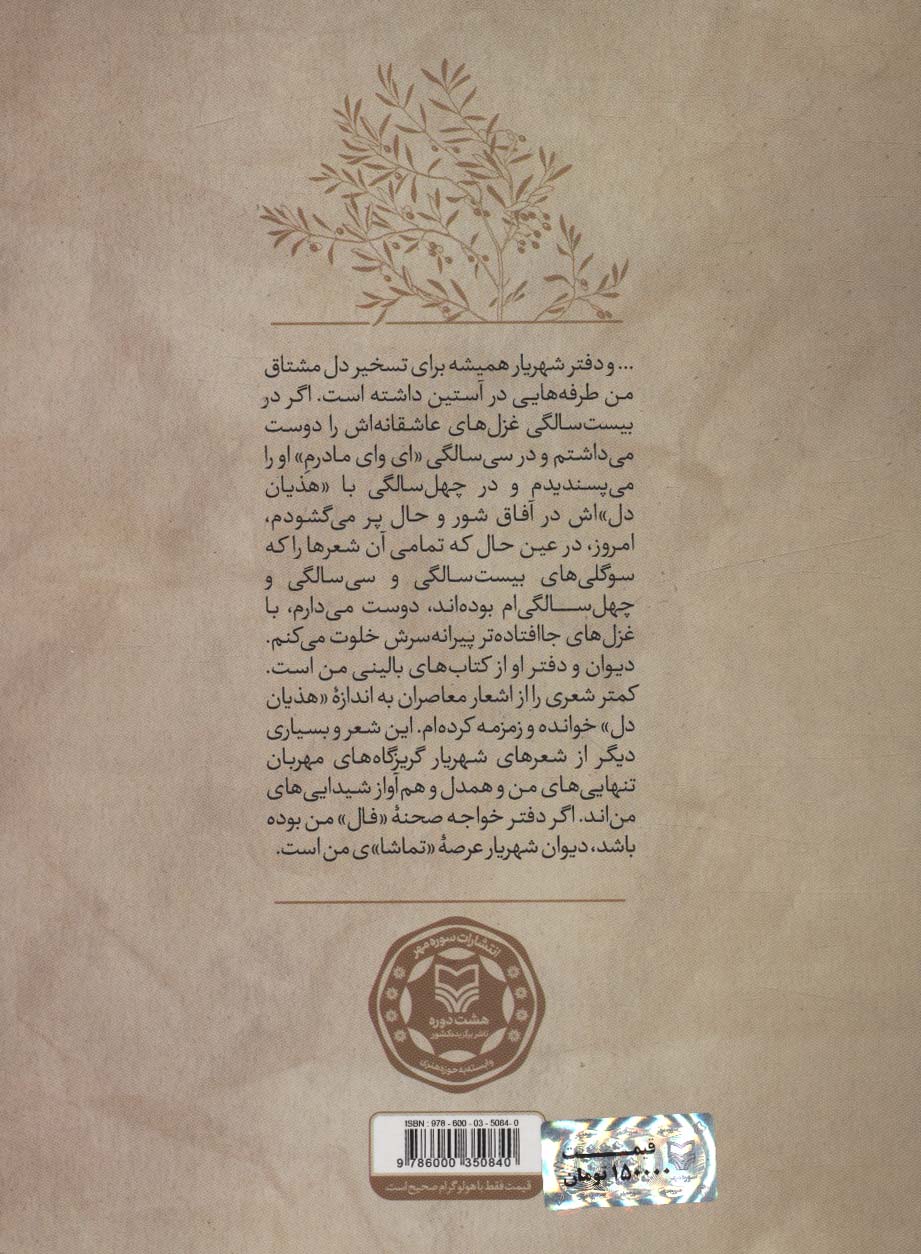 ... و دفتر شهریار همیشه برای تسخیر دل مشتاق
من طرفه‌هایی در آستین داشته است. اگر در
بیست‌سالگی غزل‌های عاشقانه‌اش را دوست
می‌داشتم و در سی‌سالگی «ای وای مادرمِ» او را
می‌پسندیدم و در چهل‌سالگی با «هذیان
دل»اش در آفاق شور و حال پر می‌گشودم،
امروز، در عین حال که تمامی آن شعرها را که
سوگلی‌های بیست‌سالگی و سی‌سالگی و
چهل‌سالگی‌ام بوده‌اند، دوست می‌دارم، با
غزل‌های جاافتاده‌تر پیرانه‌سرش خلوت می‌کنم.
دیوان و دفتر او از کتاب‌های بالینی من است.
کمتر شعری را از اشعار معاصران به اندازهٔ «هذیان
دل» خوانده و زمزمه کرده‌ام. این شعر و بسیاری
دیگر از شعرهای شهریار گریزگاه‌های مهربان
تنهایی‌های من و همدل و هم‌آواز شیدایی‌های
من‌اند. اگر دفتر خواجه صحنهٔ «فال» من بوده
باشد، دیوان شهریار عرصهٔ «تماشا»ی من است.
انتشارات سوره مهر
هشت دوره
ناشر برگزیده کشور
وابسته به حوزه هنری
ISBN : 978 - 600 - 03 - 5084 - 0
9 786000 350840
قیمت فقط با هولوگرام صحیح است
قیمت
۱۵۰۰۰۰ تومان